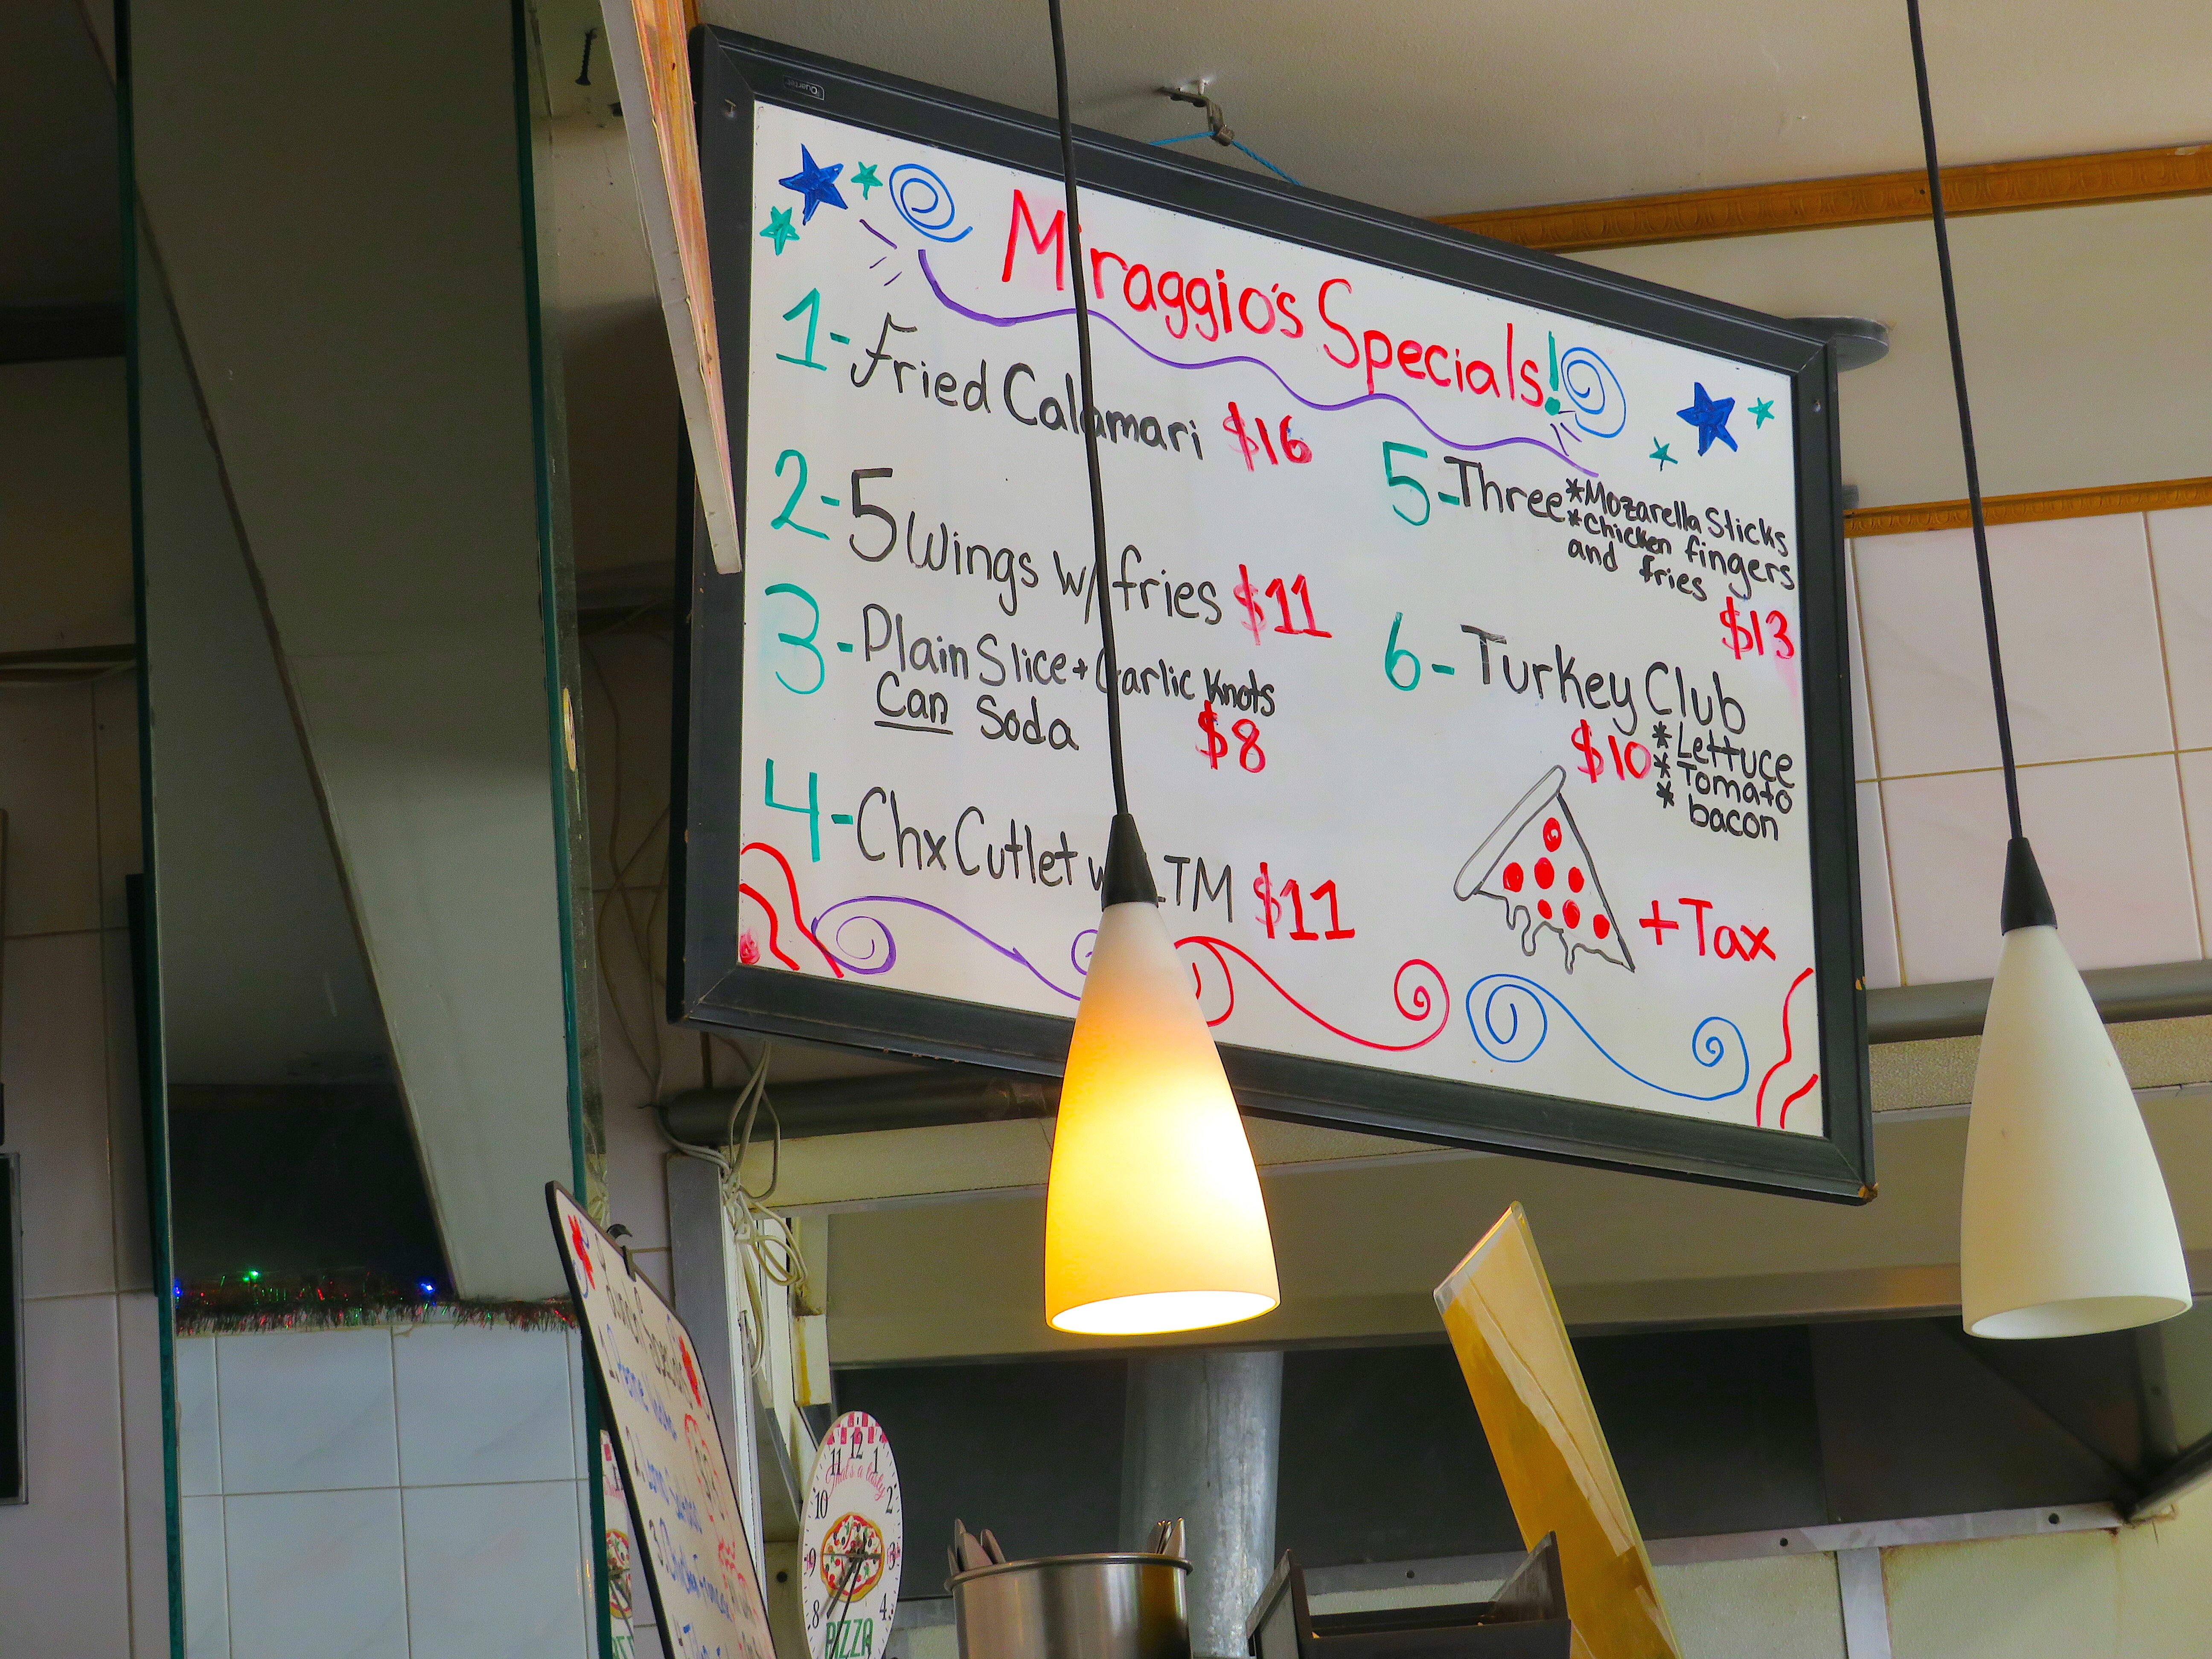 Quartet
Miraggio's Specials!
1- Fried Calamari $16
2- 5 Wings w/ fries $11
3- Plain Slice + Garlic Knots
Can Soda $8
4- Chx Cutlet w LTM $11
5- Three *Mozarella Sticks
*Chicken fingers
and fries
$13
6- Turkey Club
$10 *Lettuce
*Tomato
* bacon
+Tax
11 12 1
That's a tasty
10 2
9 3
8 4
PIZZA
2.
3.